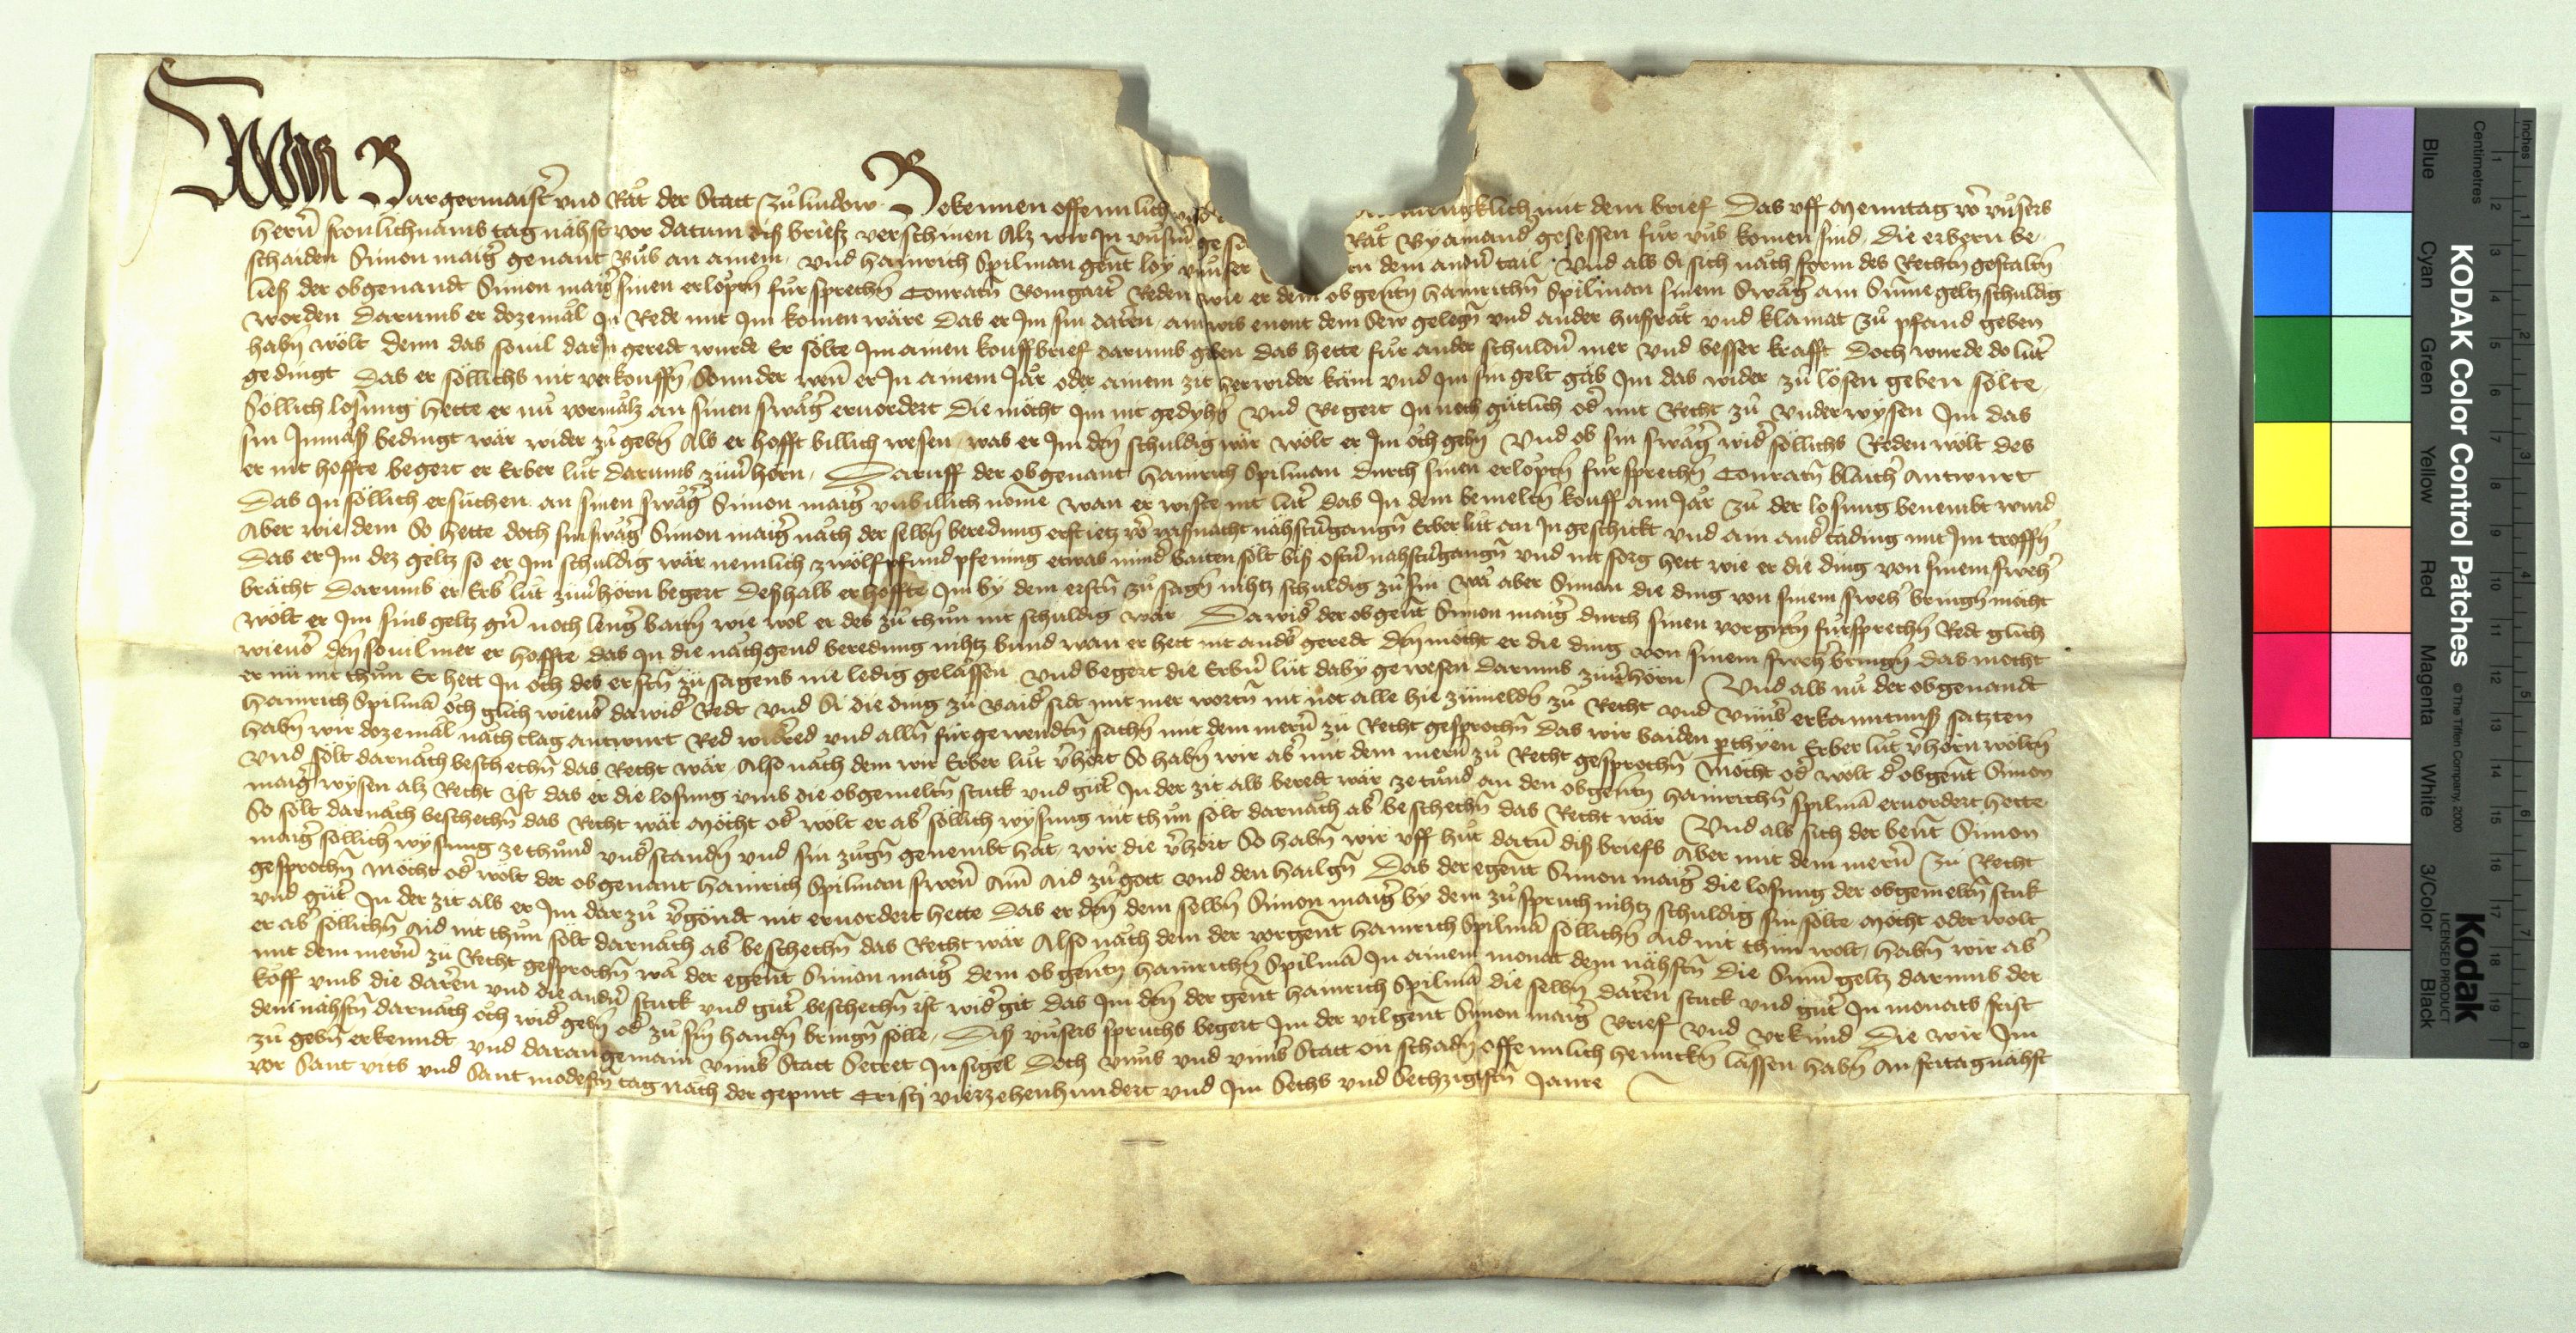 Wir Burgermaister vnd Råt der Statt zů lindow Bekennen offennlich vnd mit dem brief Das vff Menntag vor vnsers
hern fronlichnams tag nåhst vor datum diß briefs verschinen Alz wir In vnserm Råt By ainander gesessen für vns komen sind die erbern be-
schaiden Simon maiger genant Bůb an ainem vnd Hainrich Spilman gent loy vnser dem andern tail Vnd als Si sich nåch form des Rechten gestalten
ließ der obgenandt Simon maiger sinen erlopten fürsprechen Conraten Bomgarter Reden wie er dem obgenten Hainrichen Spilman sinem Swåger ain Summe geltz schuldig
worden Darumb er dozemål In Rede mit Im komen wäre Das er Im sin daren enent dem Sew gelegen vnd ander hußråt vnd klainat zů pfand geben
haben wölt Denn das souil darin geredt wurde Er sölte Im ainen kouffbrief darumb geben das hette für ander schulden mer vnd besser krafft Doch wurde do luter
gedingt Das er söllichs nit verkouffen Sunnder wenn er In ainem Jår oder ainem zit herwider käm vnd Im sin gelt gäb Im das wider zů lösen geben sölte
Söllich losung hette er nů vormålz an sinen swåger eruordert Die möcht Im nit gedyhen Vnd Begert In noch gütlich oder mit Recht zů vnderwysen Im das
sin Inmåß bedingt wär wider zů geben Als er hofft billich wesen was er Im denn schuldig wär wölt er Im och geben Vnd ob sin swåger wider söllichs Reden wölt des
er nit hoffte begert er Erber lüt darumb zůuerhörn Daruff der obgenant Hainrich Spilman durch sinen erlopten fürsprechen Conraten blaicher Antwurt
Das In söllich ersůchen an sinen swåger Simon maiger vnbillich nöme wan er wiste nit luter das In dem bemelten kouff ain Jår zů der losung benembt wurd
Aber wie dem So hette doch sin swåger Simon maiger nåch der selben beredung erst ietz vor vaßnacht nåhstuergangen Erber lüt an In geschickt vnd ain ander täding mit Im troffen
Das er Im dez geltz so er Im schuldig wär nemlich zwölf pfund pfening etwas minder baiten sölt biß ostern nåhstuergangen vnd nit sorg hett wie er die ding von sinem sweher
brächt Darumb er Erber lüt zůuerhörn begert Deßhalb er hoffte Im by dem ersten zů sagen nihtz schuldig zů sin wå aber Simon die ding von sinem sweher bringen möcht
wölt er Im sins geltz gern noch lenger baiten wie wol er des zů thůn nit schuldig wär Da wider der obgent Simon maiger durch sinen vorgenten fürsprechen Redt glich
wieuor denn souil mer er hoffte das In die nåchgend beredung nihtz bund wan er hett nit anders geredt denn möcht er die ding von sinem sweher bringen das möcht
er nů nit thůn Er hett In och des ersten zů sagens nie ledig gelåssen Vnd begert die Erbern lüt daby gewesen darumb zůuerhörn Vnd als nů der obgenandt
Hainrich Spilman och glich wieuor dawider Redt vnd Si die ding zů baider sidt mit mer worten nit not alle hie zůmelden zů Recht vnd vnser erkanntnuß satzten
Haben wir dozemål nåch clag antwurt Red widerred vnd allen fürgewendten sachen mit dem mern zů Recht gesprochen Das wir baiden parthyen Erber lüt verhörn wölten
Vnd sölt darnåch beschechen das Recht wär Also nåch dem wir Erber lüt verhört So haben wir aber mit dem mern zů Recht gesprochen Möcht oder wölt der obgent Simon
maiger wysen alz Recht ist das er die losung vmb die obgemelten stuck vnd güter In der zit als beredt wär zetůnd an den obgenten Hainrichen Spilman eruordert hette
So sölt darnåch beschechen das Recht wär Möcht oder wölt er aber söllich wysung nit thůn sölt darnåch aber beschechen das Recht wär Vnd als sich der bent Simon
maiger söllicher wysung zethůnd vnderstanden vnd sin zügen genembt håt wir die verhört So haben wir vff hüt datum diß briefs Aber mit dem mern zů Recht
gesprochen Möcht oder wölt der obgenant Hainrich Spilman swern ain Aid zů gott vnd den hailgen Das der egent Simon maiger die losung der obgemelten stuk
vnd güter In der zit als er Im darzů vergöndt nit eruordert hette Das er denn dem selben Simon maiger by dem zůspruch nihtz schuldig sin sölte Möcht oder wölt
er aber söllichen Aid nit thůn sölt darnåch aber beschechen das Recht wär Also nåch dem der vorgent Hainrich Spilman söllichen Aid nit thůn wolt haben wir aber
mit dem mern zů Recht gesprochen wå der egent Simon maiger dem obgenten Hainrichen Spilman In ainem monat dem nåhsten die Summ geltz darumb der
koff vmb die daren vnd die andern stuck vnd güter beschechen ist wider git das Im denn der gent Hainrich Spilman die selben daren stuck vnd güter In monats frist
dem nåhsten darnåch och wider geben oder zů sinen handen bringen sölle Diß vnsers spruchs begert Im der vilgent Simon maiger Brief vnd vrkünd Die wir Im
zů geben erkenndt vnd daran gemain vnser Statt Secret Insigel Doch vnns vnd vnser Statt on schaden offennlich hencken låssen haben An fritag nåhst
vor Sant vits vnd Sant modesten tag nåch der gepurt Cristi vierzehenhundert vnd Im Sechs vnd Sechzigisten Jaure
KODAK Color Control Patches
© The Tiffen Company, 2000
Kodak
LICENSED PRODUCT
Blue
Cyan
Green
Yellow
Red
Magenta
White
3/Color
Black
Inches
Centimetres
1 2 3 4 5 6 7 8
1 2 3 4 5 6 7 8 9 10 11 12 13 14 15 16 17 18 19